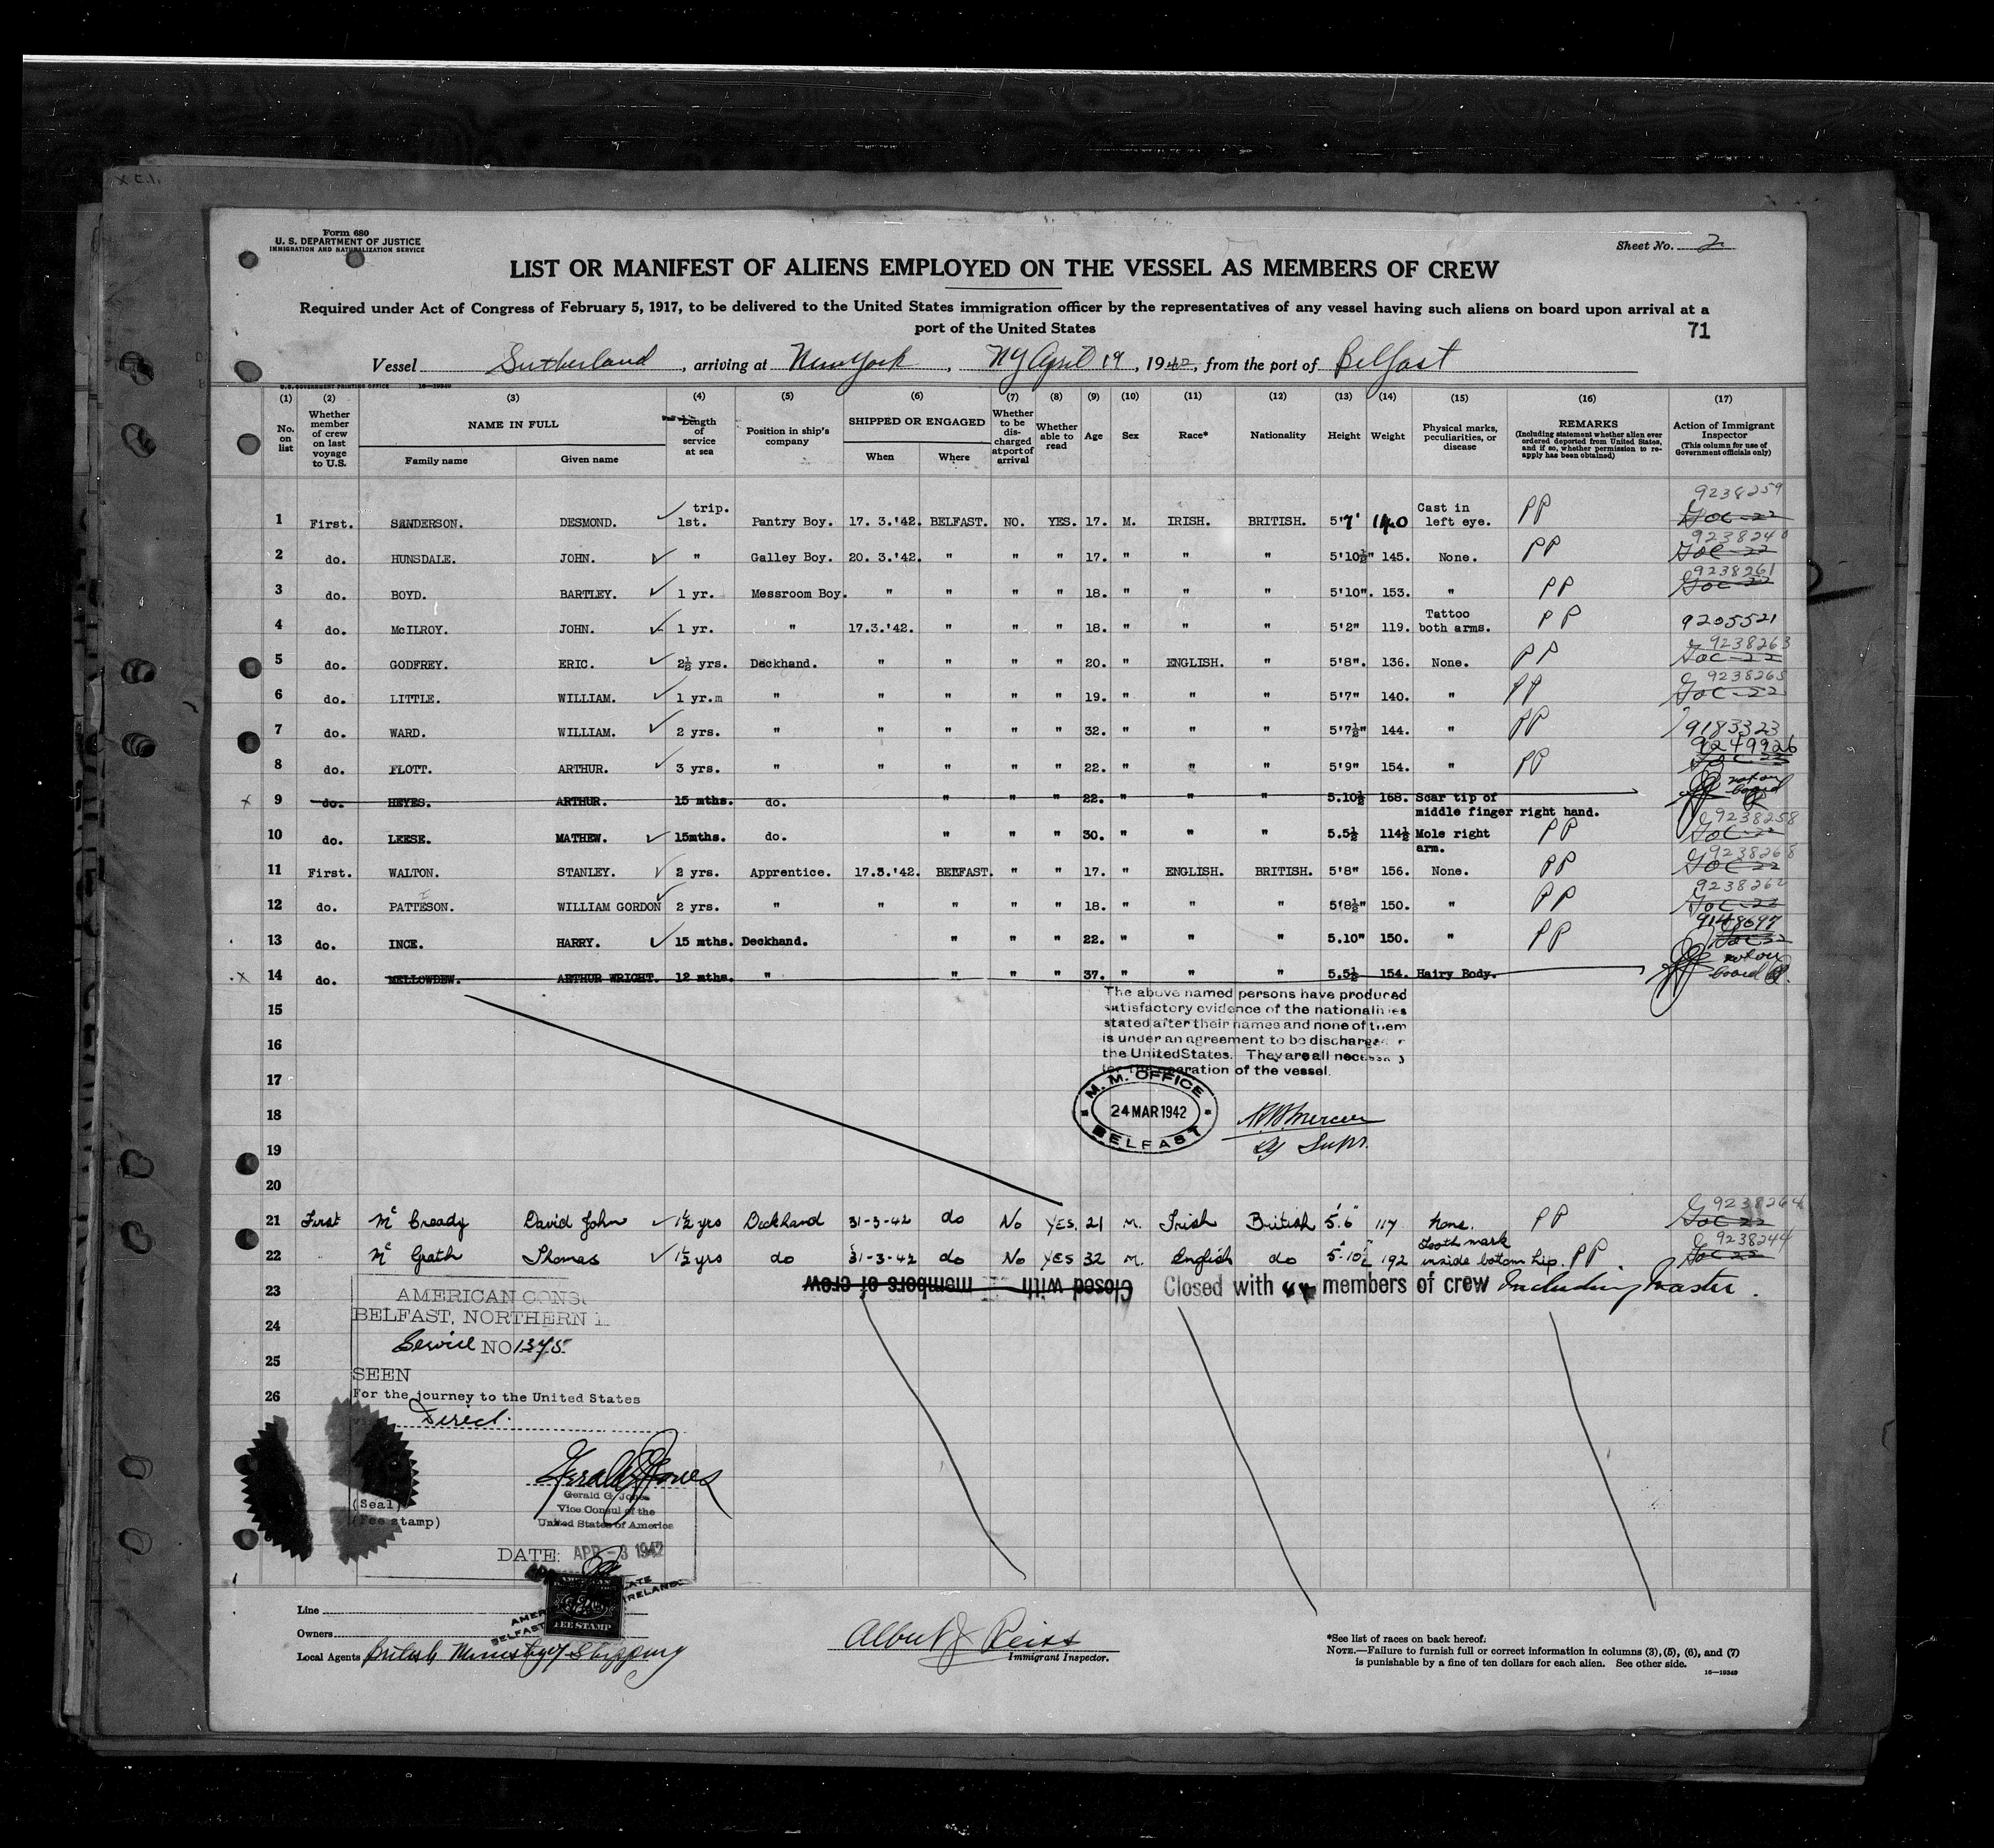 x C.1.
Form 680
U. S. DEPARTMENT OF JUSTICE
IMMIGRATION AND NATURALIZATION SERVICE
Sheet No. 2
LIST OR MANIFEST OF ALIENS EMPLOYED ON THE VESSEL AS MEMBERS OF CREW
Required under Act of Congress of February 5, 1917, to be delivered to the United States immigration officer by the representatives of any vessel having such aliens on board upon arrival at a
port of the United States
71
Vessel Sutherland, arriving at New York, NY April 19, 1942, from the port of Belfast
U. S. GOVERNMENT PRINTING OFFICE 16—19349
(1) (2) (3) (4) (5) (6) (7) (8) (9) (10) (11) (12) (13) (14) (15) (16) (17)
No. on list
Whether member of crew on last voyage to U.S.
NAME IN FULL
Family name Given name
Length of service at sea
Position in ship's company
SHIPPED OR ENGAGED
When Where
Whether to be discharged at port of arrival
Whether able to read
Age
Sex
Race*
Nationality
Height
Weight
Physical marks, peculiarities, or disease
REMARKS
(Including statement whether alien ever ordered deported from United States, and if so, whether permission to re-apply has been obtained)
Action of Immigrant Inspector
(This column for use of Government officials only)
1 First. SANDERSON. DESMOND. ✓ trip. 1st. Pantry Boy. 17. 3.'42. BELFAST. NO. YES. 17. M. IRISH. BRITISH. 5'7" 140 Cast in left eye. PP 9238259
2 do. HUNSDALE. JOHN. ✓ " Galley Boy. 20. 3.'42. " " " 17. " " " 5'10½" 145. None. PP 9238240
3 do. BOYD. BARTLEY. ✓ 1 yr. Messroom Boy. " " " " 18. " " " 5'10". 153. " PP 9238261
4 do. McILROY. JOHN. ✓ 1 yr. " 17.3.'42. " " " 18. " " " 5'2" 119. Tattoo both arms. PP 9205521
5 do. GODFREY. ERIC. ✓ 2½ yrs. Deckhand. " " " " 20. " ENGLISH. " 5'8". 136. None. PP 9238263
6 do. LITTLE. WILLIAM. ✓ 1 yr.m " " " " " 19. " " " 5'7" 140. " PP 9238265
7 do. WARD. WILLIAM. ✓ 2 yrs. " " " " " 32. " " " 5'7½" 144. " PP 9183323
8 do. FLOTT. ARTHUR. ✓ 3 yrs. " " " " " 22. " " " 5'9" 154. " PP 9249926
x 9 do. HEYES. ARTHUR. 15 mths. do. " " " 22. " " " 5.10½ 168. Scar tip of middle finger right hand. not on board
10 do. LEESE. MATHEW. ✓ 15mths. do. " " " 30. " " " 5.5½ 114½ Mole right arm. PP 9238258
11 First. WALTON. STANLEY. ✓ 2 yrs. Apprentice. 17.3.'42. BELFAST. " " 17. " ENGLISH. BRITISH. 5'8" 156. None. PP 9238268
12 do. PATTESON. WILLIAM GORDON ✓ 2 yrs. " " " " " 18. " " " 5'8½" 150. " PP 9238262
13 do. INCE. HARRY. ✓ 15 mths. Deckhand. " " " 22. " " " 5.10" 150. " PP 9148697
x 14 do. MELLOWDEW. ARTHUR WRIGHT. 12 mths. " " " " 37. " " " 5.5½ 154. Hairy Body. not on board
15
The above named persons have produced
satisfactory evidence of the nationalities
stated after their names and none of them
16
is under an agreement to be discharged
the United States. They are all necessary
17
for the operation of the vessel.
M. M. OFFICE
24 MAR 1942
BELFAST
18
19
20
21 First McCready David John ✓ 1½ yrs Deckhand 31-3-42 do No YES. 21 M. Irish British 5'.6" 117 None. PP 9238264
22 McGrath Thomas ✓ 1½ yrs do 31-3-42 do No YES 32 M. English do 5'.10½ 192 tooth mark inside bottom lip. PP 9238244
23 Closed with members of crew Closed with members of crew Including Master.
24
25
26
AMERICAN CONS
BELFAST, NORTHERN I
Service NO 1375
SEEN
For the journey to the United States
Direct.
(Seal)
(Fee stamp)
Gerald G. Jones
Vice Consul of the
United States of America
DATE: APR - 3 1942
FEE STAMP
Line
Owners
Local Agents British Ministry of Shipping
Albert J Reiss
Immigrant Inspector.
*See list of races on back hereof.
NOTE.—Failure to furnish full or correct information in columns (3), (5), (6), and (7)
is punishable by a fine of ten dollars for each alien. See other side.
16—19349